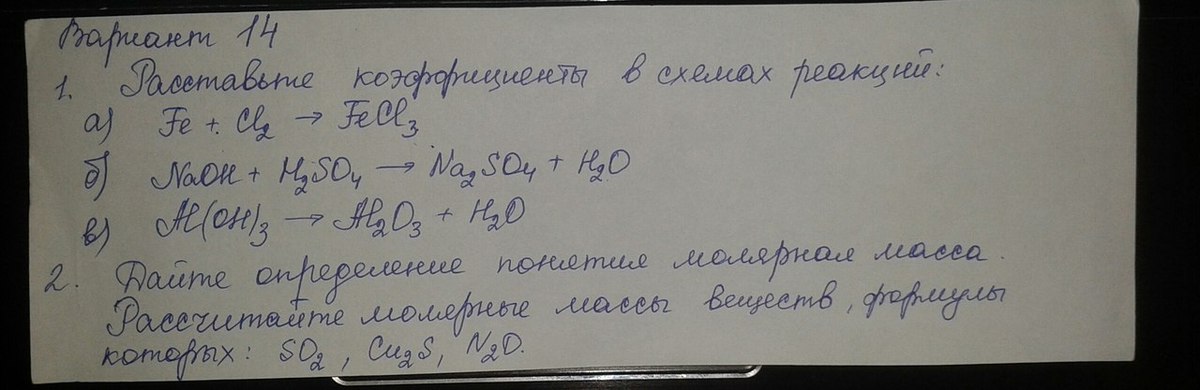 Вариант 14
1. Расставьте коэффициенты в схемах реакций:
а) Fe + Cl₂ → FeCl₃
б) NaOH + H₂SO₄ → Na₂SO₄ + H₂O
в) Al(OH)₃ → Al₂O₃ + H₂O
2. Дайте определение понятия молярная масса.
Рассчитайте молярные массы веществ, формулы
которых: SO₂, Cu₂S, N₂O.